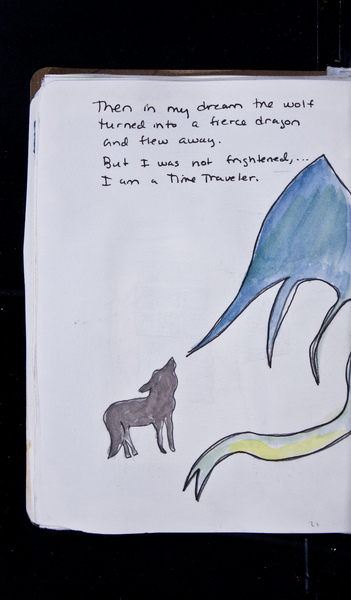 Then in my dream the wolf
turned into a fierce dragon
and flew away.
But I was not frightened,...
I am a Time Traveler.